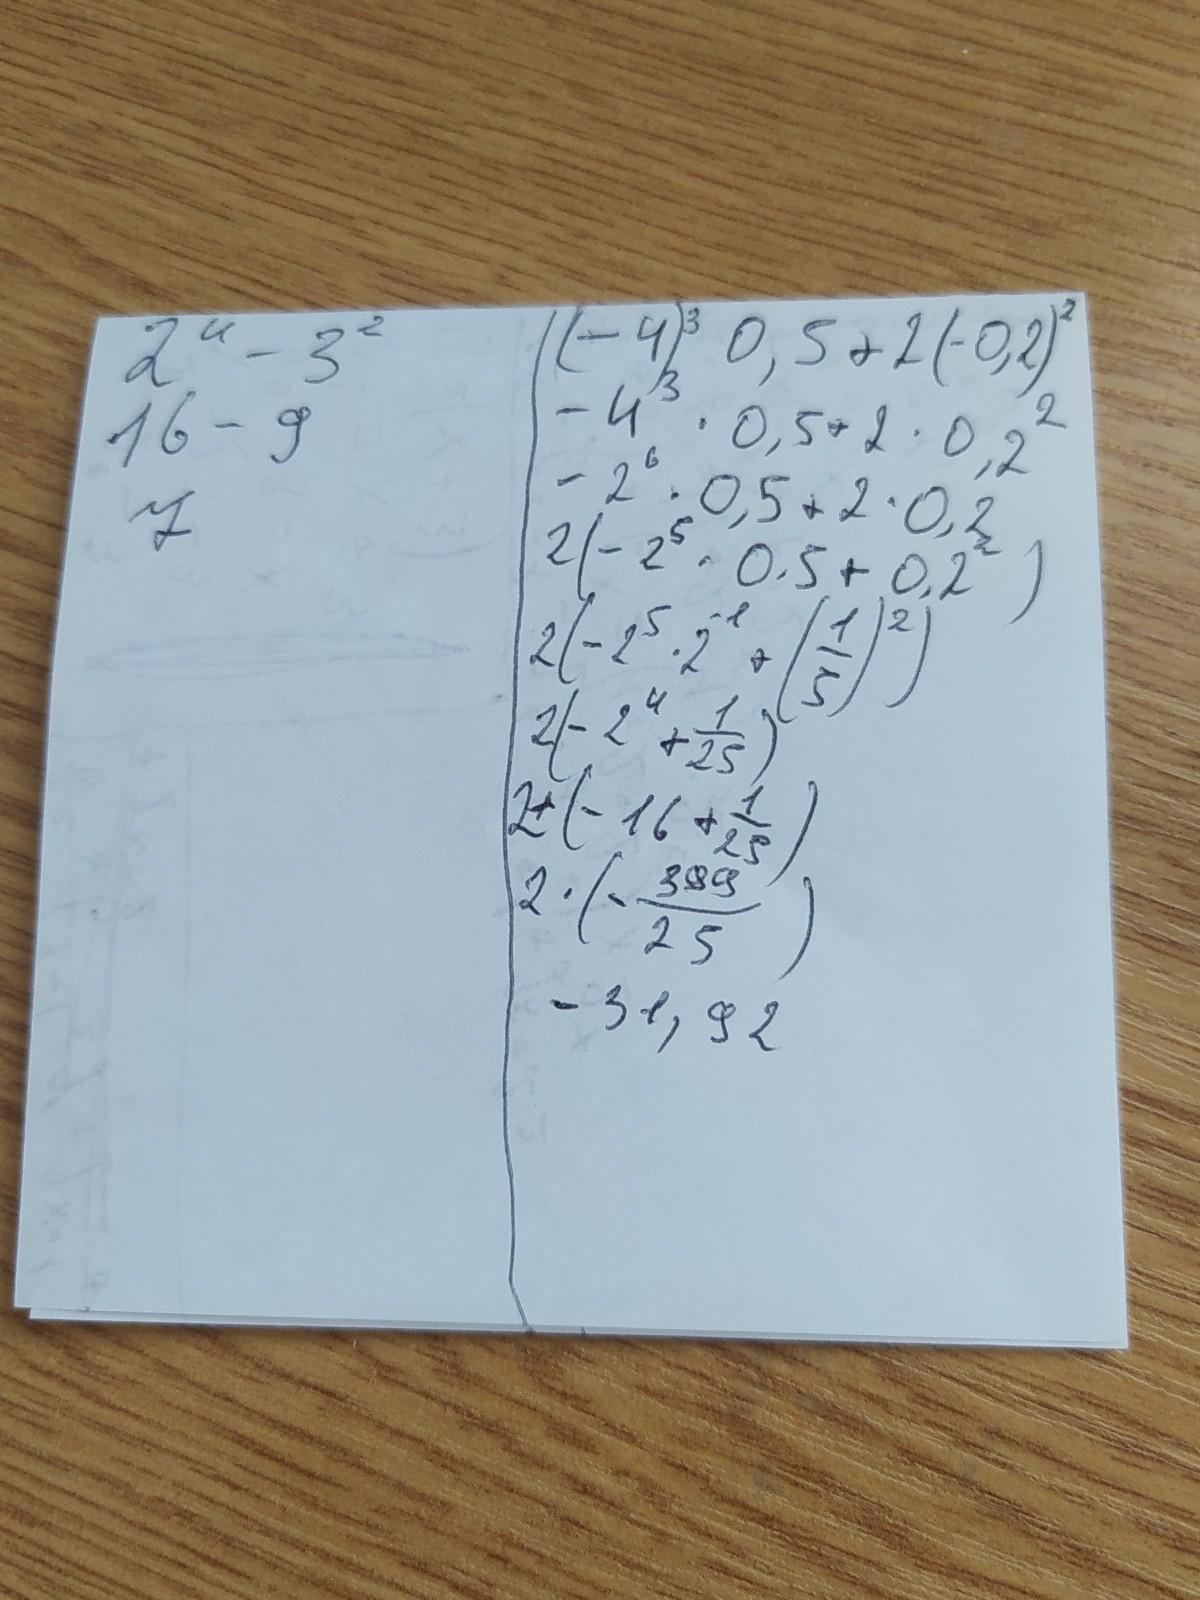 2⁴ - 3²
16 - 9
7
(-4)³ 0,5 + 2(-0,2)²
-4³ · 0,5 + 2 · 0,2²
-2⁶ · 0,5 + 2 · 0,2²
2(-2⁵ · 0.5 + 0,2²)
2(-2⁵ · 2⁻¹ + (1/5)²)
2(-2⁴ + 1/25)
2·(-16 + 1/25)
2 · (-399/25)
-31,92